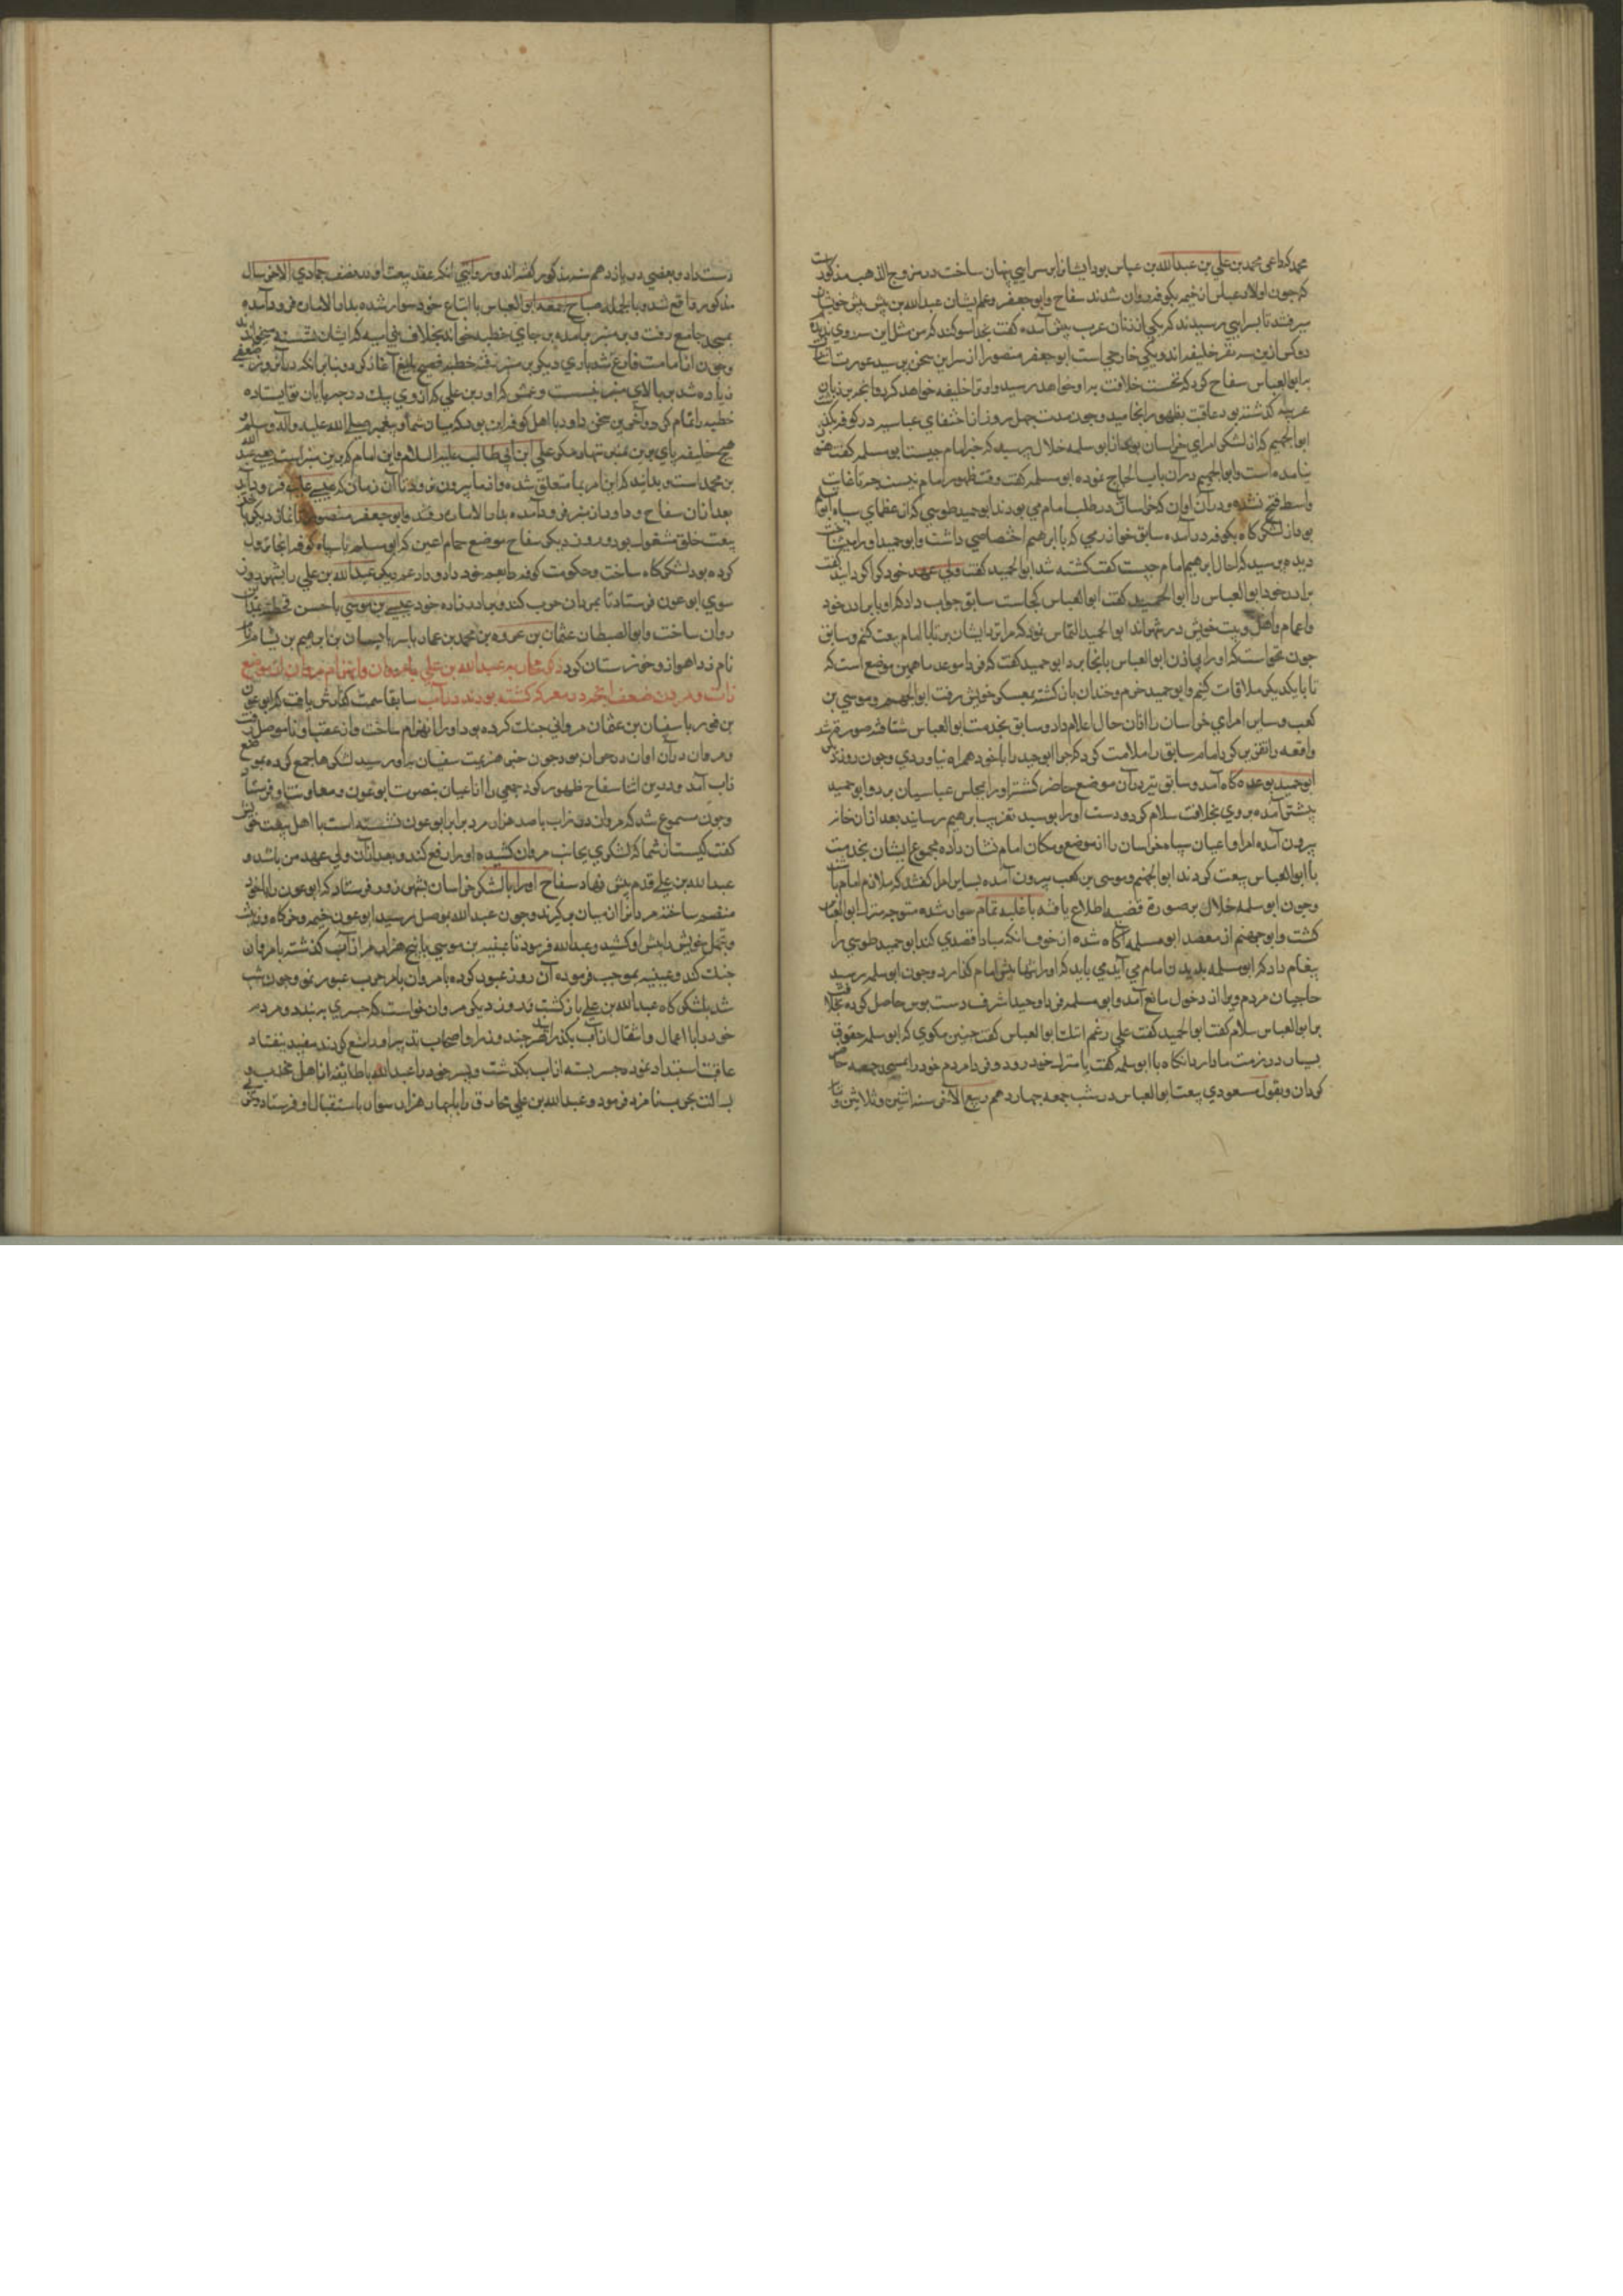 محمد که داعی محمد بن علی بن عبدالله بن عباس بود ایشانرا بسرایی پنهان ساخت در مروج الذهب مذکورست
که چون اولاد عباس از خیمه بکوفه روان شدند سفاح و ابو جعفر و عم ایشان عبدالله بن پیش پیش خویشان
میرفتند تا بسرایی رسیدند که یکی از زنان عرب پیش آمده گفت بخدا سوکند که من مثل این سه روی ندیدم
دو کس ازین سه نفر خلیفه اند و یکی خارجی است ابو جعفر منصور از سر این سخن پرسید عورت
با بو العباس سفاح کرد که نخست خلافت براو خواهد رسید و او ترا خلیفه خواهد کرد و آنچه بر زبان
عربیه کذشته بود عاقبت بظهور انجامید و چون مدت چهل روز از اختفای عباسیه در کوفه
ابو الجهیم که از لشکر امرای خراسان بود از ابو سلمه خلال پرسید که خبر امام چیست ابو سلمه کفت هنوز
نیامده است و ابو الجهیم در آن باب الحاح نموده ابو سلمه کفت وقت ظهور امام نیست چه تا غایت
واسط فتح نشده و در آن اوان که خراسان در طلب امام می بودند ابو حمید طوسی که از عظمای سپاه
بود از لشکرکاه بکوفه در آمده سابق خوارزمی که با ابرهیم اختصاصی داشت و ابو حمید او را
دیده پرسید که احوال ابرهیم امام چیست کفت کشته شد ابو الحمید کفت ولی عهد خود که را کردانید کفت
برادر خود ابو العباس را ابو الحمید کفت ابو العباس کجاست سابق جواب داد که او با برادر خود
و اعمام و اهل بیت خویش در شهراند ابو الحمید التماس نمود که مرا نزد ایشان بر تا با امام بیعت کنم و سابق
چون نخواست که او را بی اذن ابو العباس بانجا برد ابو حمید کفت که فردا موعد ما همین موضع است که
تا با یکدیکر ملاقات کنیم و ابو حمید خرم و خندان باز کشته بمعسکر خویش رفت ابو الجهم و موسی بن
کعب و سایر امرای خراسان را ازان حال اعلام داد و سابق بخدمت ابو العباس شتافته صورت
واقعه را تقریر کرد امام سابق را ملامت کرد که چرا ابو حمید را با خود همراه نیاوردی و چون روز دیکر
ابو حمید بوعده کاه آمد و سابق نیز در آن موضع حاضر کشته او را بمجلس عباسیان برد و ابو حمید
پیش آمده بروی بخلافت سلام کرد و دست او را بوسید تعزیت ابرهیم رسانید بعد ازان خانه
بیرون آمده امرا و اعیان سپاه خراسان را از موضع و مکان امام نشان داده مجموع ایشان بخدمت
با ابو العباس بیعت کردند ابو الجهم و موسی بن کعب بیرون آمده بسایر امرا کفتند که ملازم امام
و چون ابو سلمه خلال برین صورت قضیه اطلاع یافته با غلبه تمام سوار شده متوجه منزل ابو العباس
کشت و ابو جهم از مقصد ابو مسلمه آکاه شده از خوف آنکه مبادا قصدی کند ابو حمید طوسی را
پیغام داد که ابو سلمه بدیدن امام می آید می باید که او را تنها پیش امام کذارد و چون ابو سلمه رسید
حاجبان مردم ویرا از دخول مانع آمدند و ابو سلمه فردا وحیدا شرف دست بوس حاصل کرده بخلافت
بر ابو العباس سلام کفت ابو الحمید کفت علی رغم انفک ابو العباس کفت چنین مکوی که ابو سلمه حقوق
بسیار در ذمت ما دارد آنکاه با ابو سلمه کفت بمنزل خود رو و فردا مردم خود را بمسجد جمعه حاضر
کردان و بقول مسعودی بیعت ابو العباس در شب جمعه چهاردهم ربیع الآخر سنه اثنین و ثلاثین و مایه
دست داد و بعضی در یازدهم شهر مذکور کفته اند و روایتی آنکه عقد بیعت او در نصف جمادی الآخر سال
مذکور واقع شد و بالجمله صباح جمعه ابو العباس با اتباع خود سوار شده بدار الاماره فرود آمده
بمسجد جامع رفت و بر منبر بر آمده بر جای خطبه خواند بخلاف بنی امیه که ایشان نشسته میخواندند
و چون از امامت فارغ شد باری دیکر بر منبر رفته خطبه فصیح بلیغ آغاز کرد و بنا بر آنکه در آنروز ضعفی
زیاده شد بر بالای منبر بنشست و عمش که داود بن علی که از وی یک درجه پایان تر ایستاده
خطبه را تمام کرد و آخرین سخن داود با اهل کوفه این بود که میان شما و پیغمبر صلی الله علیه و آله و سلم
هیچ خلیفه پای برین منبر ننهاد مکر علی ابن ابی طالب علیه السلام و این امام که برین منبر است یعنی عبد الله
بن محمد است و بدانید که این امر بما متعلق شده و از ما بیرون نرود تا آن زمان که عیسی علیه فرود آید
بعد ازان سفاح و داود از منبر فرود آمده بدار الاماره رفتند و ابو جعفر منصور تا نماز دیکر باخذ
بیعت خلق مشغول بود و روز دیکر سفاح موضع حمام اعین که ابو سلمه با سپاه کوفه آنجا نزول
کرده بود لشکرکاه ساخت و حکومت کوفه را بعم خود داود داد عم دیکر عبدالله بن علی را بشهرزور
سوی ابو عون فرستاد تا بمروان حرب کند و برادر زاده خود عیسی بن موسی با حسن قحطبه
روان ساخت و ابو الیقظان عثمان بن عروه بن محمد بن عمار یاسر با بسام بن ابرهیم بن بسام را
نام زد اهواز و خوزستان کرد ذکر محاربه عبدالله بن علی با مروان و انهزام مروان از موضع
زاب و مردن ضعف آنچه در معرکه کشته بودند در آب سابقا سمت کذارش یافت که ابو عون
با سفیان بن عثمان مروانی جنک کرده بود او را انهزام ساخت و از عقب او تا موصل رفت
و مروان در آن اوان در حران بود چون خبر هزیمت سفیان باو رسید لشکرها جمع کرده بموضع
زاب آمد و درین اثنا سفاح ظهور کرد جمعی را از اعیان بنصرت ابو عون و معاونت او فرستاد
و چون مسموع شد که مروان در زاب با صد هزار مرد برابر ابو عون نشسته است با اهل بیعت خویش
کفت کیست از شما که لشکری بجانب مروان کشیده او را دفع کند و بعد ازان ولی عهد من باشد و
عبدالله بن علی قدم پیش نهاد سفاح او را با لشکر خراسان بشهرزور فرستاد که ابو عون را با خود
منضم ساخته مروانرا از میان بر کیرند و چون عبدالله بموصل رسید ابو عون خیمه و خرکاه و زینت
و تجمل خویش را پیش او کشید و عبدالله فرمود تا عیینه بن موسی با پنج هزار مرد از آب کذشته با مروان
جنک کند و عیینه بموجب فرموده آن روز عبور کرده با مروان بامر حرب عبور نمود و چون شب
شد بلشکرکاه عبدالله بن علی باز کشت و روز دیکر مروان خواست که جسری بر بندد و مردم
خود را با اعمال و اثقال از آب بکذراند هر چند وزرا و اصحاب تدبیر او را منع کردند مفید نیفتاد
عاقبت استبداد نموده جسر بسته از آب بکذشت و پسر خود را عبدالله با طایفه از اهل
بحرب نامزد فرمود و عبدالله بن علی مخارق را با چهار هزار سوار باستقبال او فرستاد